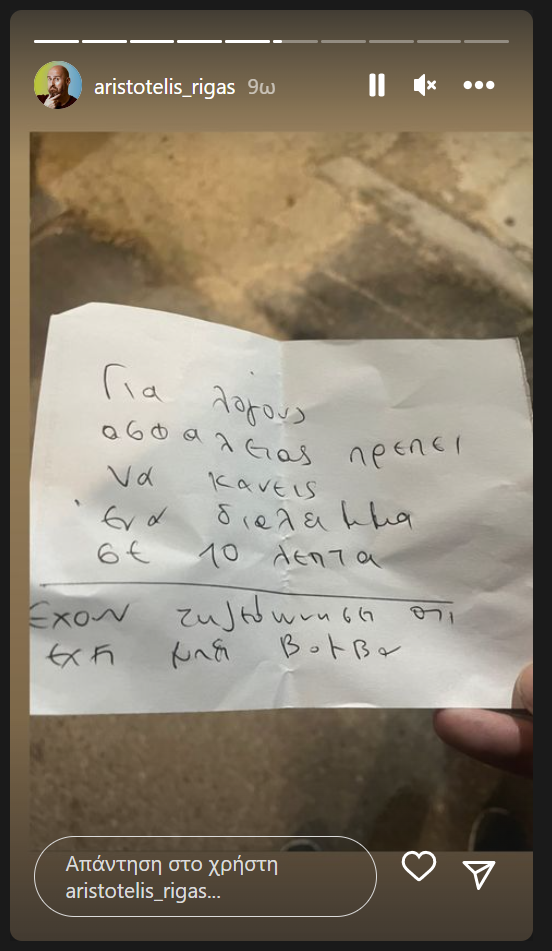 aristotelis_rigas 9ω
Για λόγους
ασφαλειας πρεπει
Να κανεις
ενα διαλειμμα
σε 10 λεπτα
Εχουν τηλεφωνησει οτι
εχει μπει βομβα
Απάντηση στο χρήστη
aristotelis_rigas...